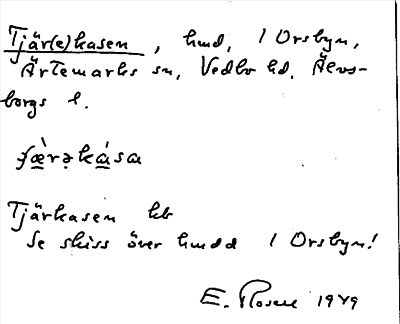 Tjär(e)kasen, hmd, 1 Orsbyn,
Ärtemarks sn, Vedbo hd, Älvs-
borgs l.
çæ̀rəkása
Tjärkasen hb
Se skiss över hmdd 1 Orsbyn!
E. Rosell 1949